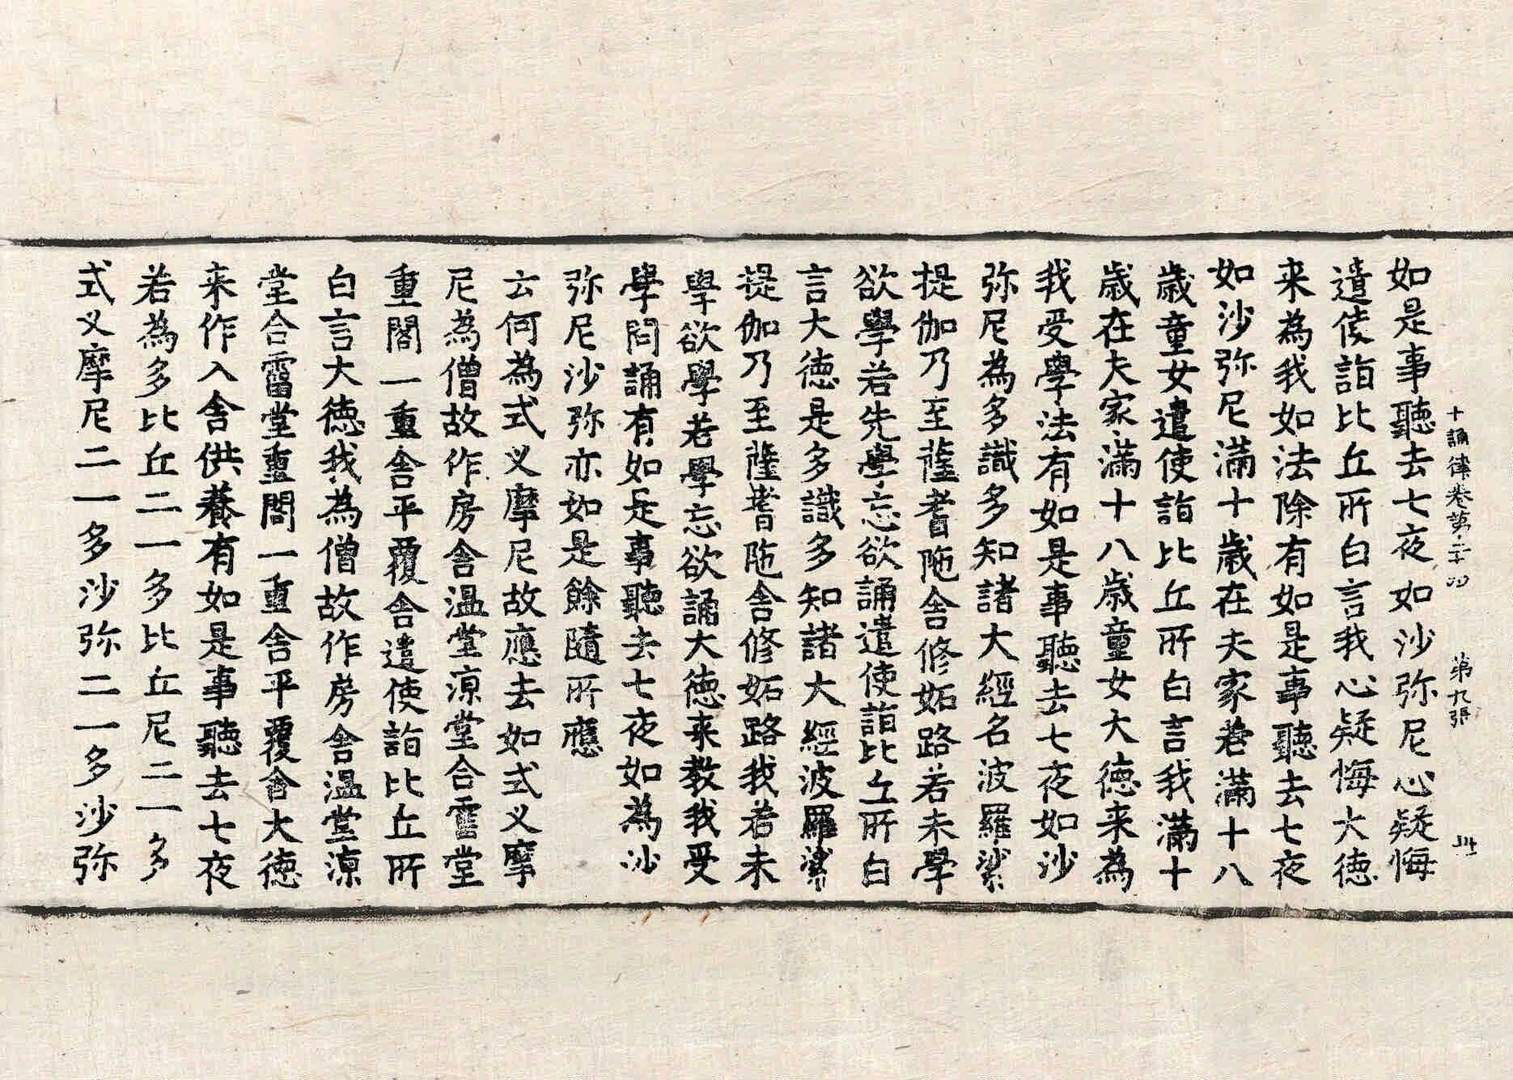 十誦律卷第二十四 第九張
如是事聽去七夜如沙弥尼心疑悔
遣使詣比丘所白言我心疑悔大德
来為我如法除有如是事聽去七夜
如沙弥尼滿十歲在夫家若滿十八
歲童女遣使詣比丘所白言我滿十
歲在夫家滿十八歲童女大德来為
我受學法有如是事聽去七夜如沙
弥尼為多識多知諸大經名波羅㲚
提伽乃至薩耆陁舍修妬路若未學
欲學若先學忘欲誦遣使詣比丘所白
言大德是多識多知諸大經波羅㲚
提伽乃至薩耆陁舍修妬路我若未
學欲學若學忘欲誦大德来教我受
學問誦有如是事聽去七夜如為沙
弥尼沙弥亦如是餘隨所應
云何為式叉摩尼故應去如式叉摩
尼為僧故作房舍温堂凉堂合霤堂
重閣一重舍平覆舍遣使詣比丘所
白言大德我為僧故作房舍温堂凉
堂合霤堂重閣一重舍平覆舍大德
来作入舍供養有如是事聽去七夜
若為多比丘二一多比丘尼二一多
式叉摩尼二一多沙弥二一多沙弥